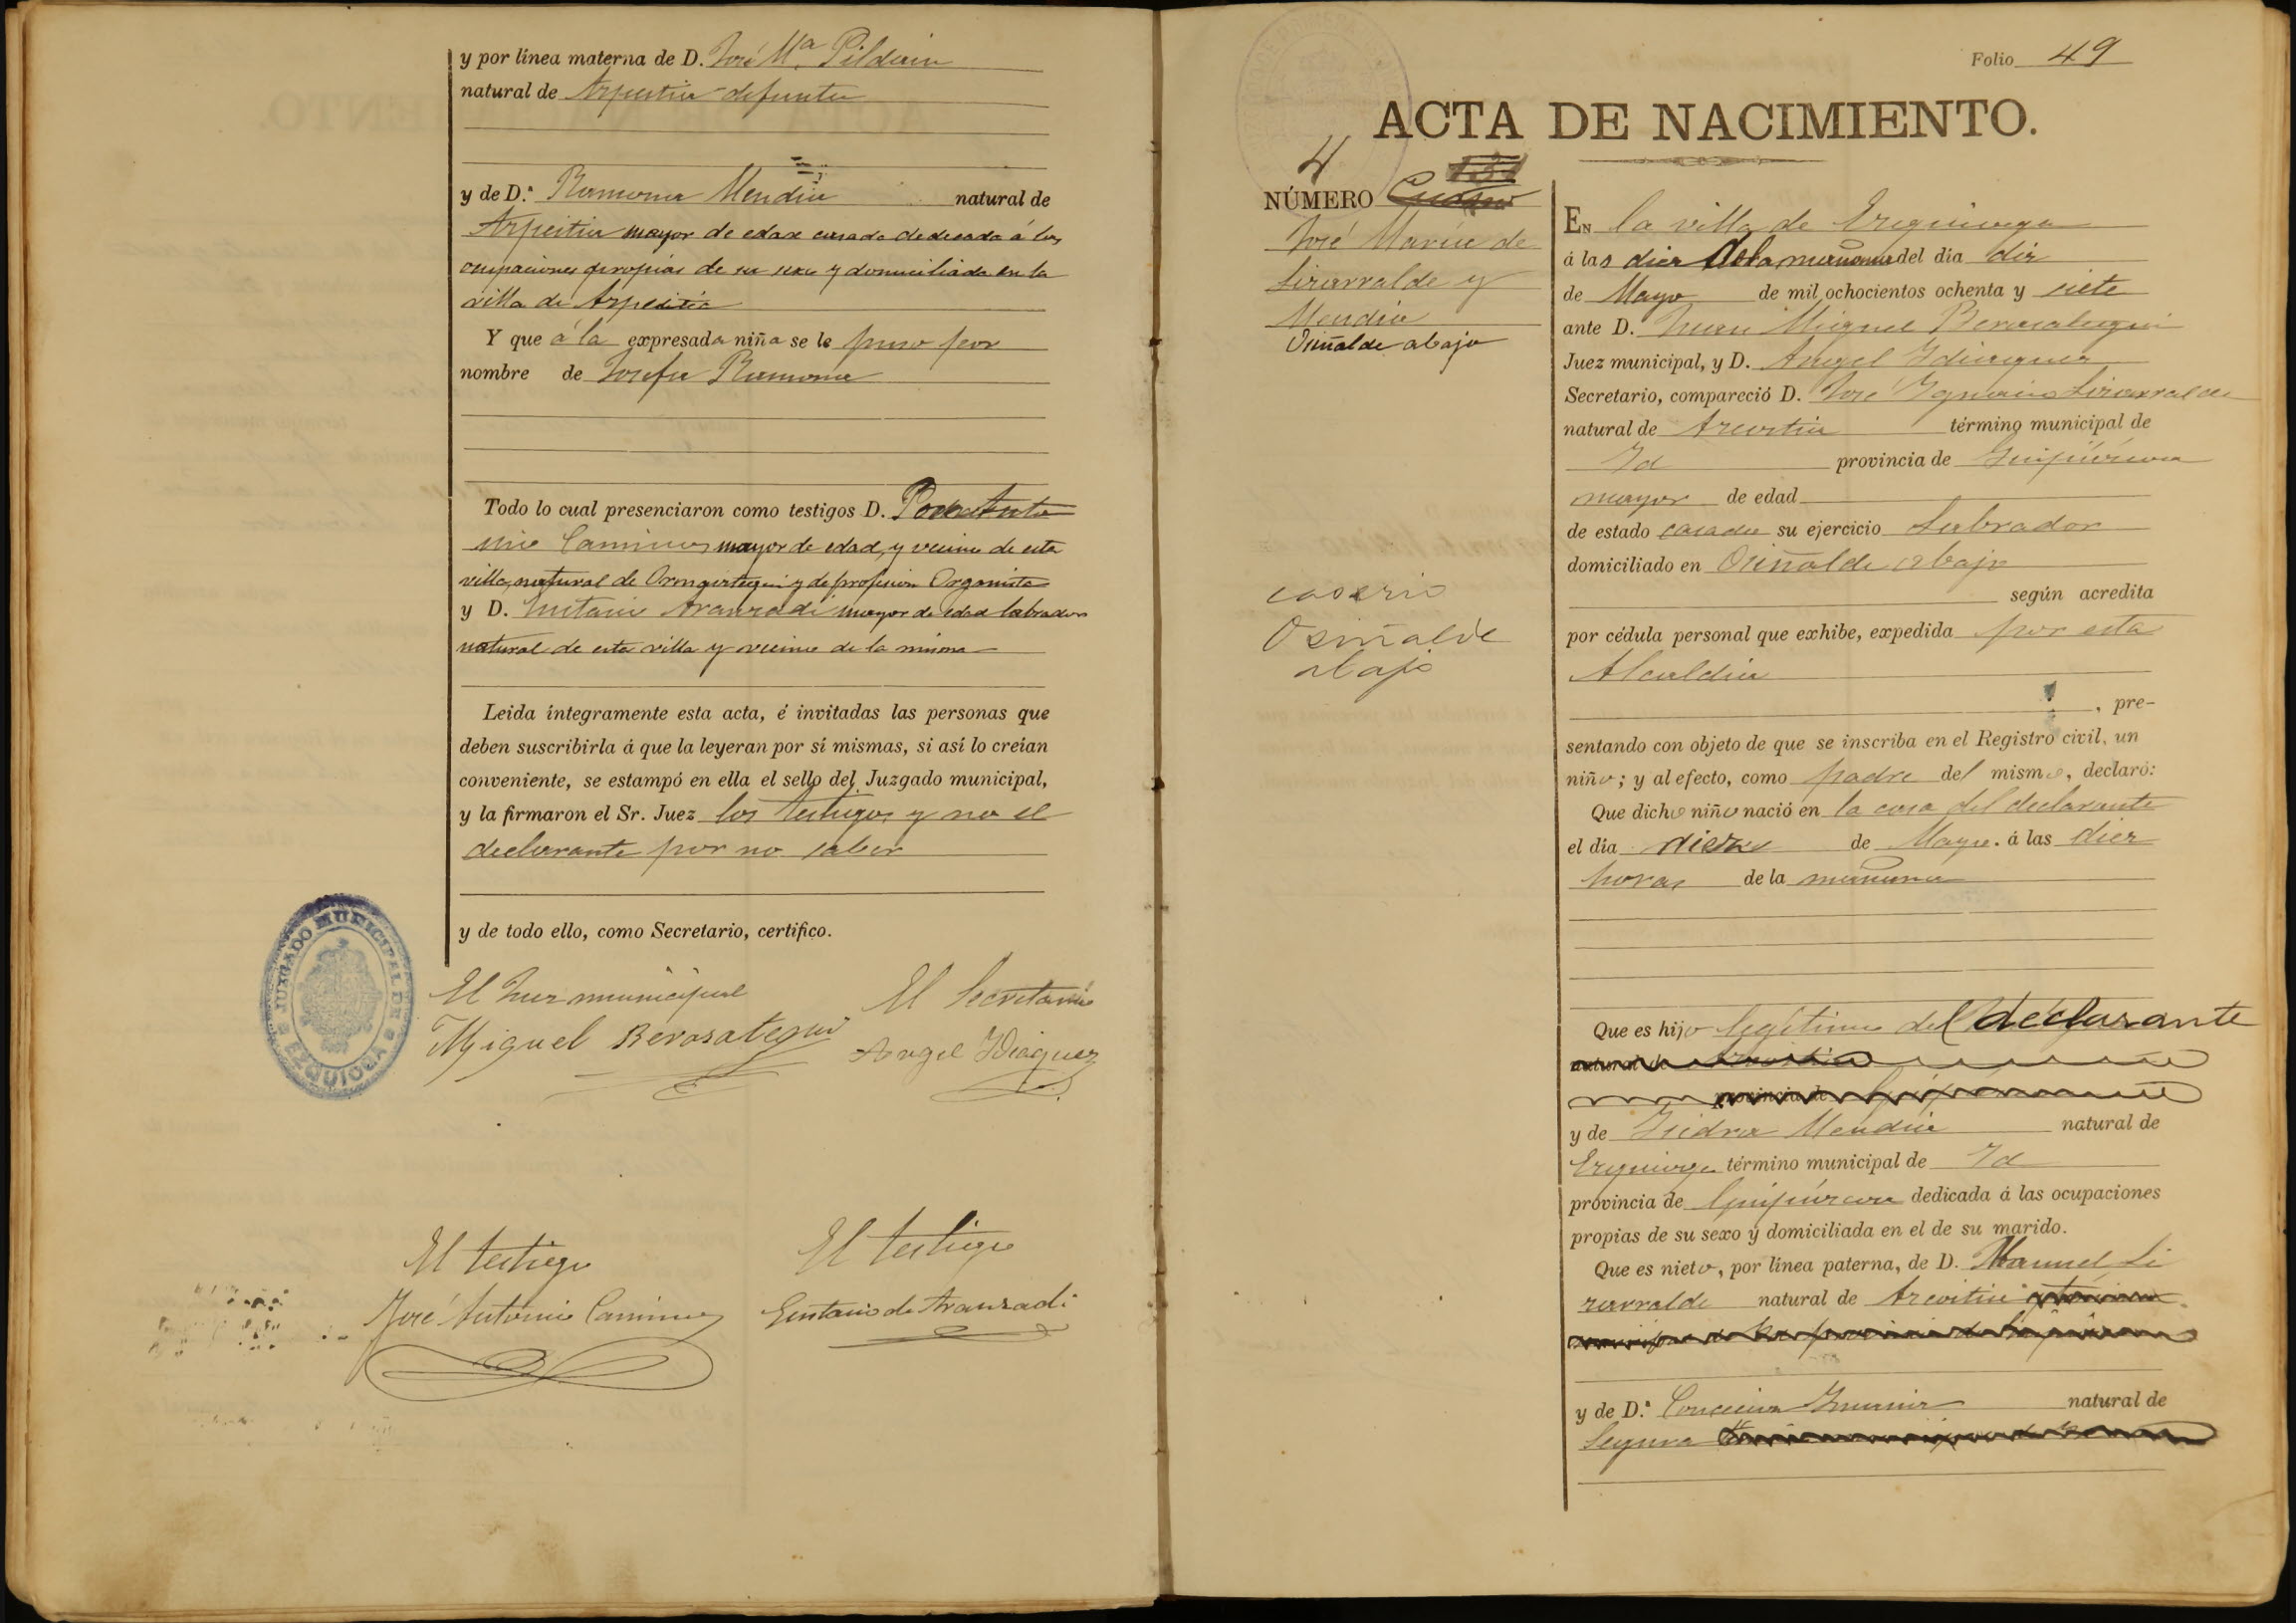 y por línea materna de D. José Mª Pildain
natural de Azpeitia difunto
y de D.ª Ramona Mendia natural de
Azpeitia mayor de edad casada dedicada á las
ocupaciones propias de su sexo y domiciliada en la
villa de Azpeitia
Y que á la expresada niña se le puso por
nombre de Josefa Ramona
Todo lo cual presenciaron como testigos D. José Anto
nio Caminos mayor de edad, y vecino de esta
villa, natural de y de profesion Organista
y D. Eustasio Aranzadi mayor de edad labrador
natural de esta villa y vecino de la misma
Leida íntegramente esta acta, é invitadas las personas que
deben suscribirla á que la leyeran por sí mismas, si así lo creían
conveniente, se estampó en ella el sello del Juzgado municipal,
y la firmaron el Sr. Juez los testigos y no el
declarante por no saber
y de todo ello, como Secretario, certifico.
JUZGADO MUNICIPAL DE EZQUIOGA
El Juez municipal
El Secretario
Miguel Berasategui
Angel Ydiaquez
El testigo
El testigo
José Antonio Caminos
Eustasio de Aranzadi
Folio 49
ACTA DE NACIMIENTO.
4
NÚMERO Cuatro
José María de
Lizarralde y
Mendia
Osiñalde abajo
caserio
Osiñalde
abajo
EN la villa de Ezquioga
á las diez de la mañana del dia diez
de Mayo de mil ochocientos ochenta y siete
ante D. Juan Miguel Berasategui
Juez municipal, y D. Angel Ydiaquez
Secretario, compareció D. José Ygnacio Lizarralde
natural de Azcoitia término municipal de
Yd provincia de Guipúzcoa
mayor de edad
de estado casado su ejercicio Labrador
domiciliado en Osiñalde abajo
según acredita
por cédula personal que exhibe, expedida por esta
Alcaldia
, pre-
sentando con objeto de que se inscriba en el Registro civil, un
niño; y al efecto, como padre del mismo, declaró:
Que dicho niño nació en la casa del declarante
el dia diez de Mayo. á las diez
horas de la mañana
Que es hijo legítimo del declarante
natural de Azcoitia
provincia de Guipúzcoa
y de Ysidra Mendia natural de
Ezquioga término municipal de Yd
provincia de Guipúzcoa dedicada á las ocupaciones
propias de su sexo y domiciliada en el de su marido.
Que es nieto, por línea paterna, de D. Manuel Li
zarralde natural de Azcoitia
y de D.ª natural de
Segura